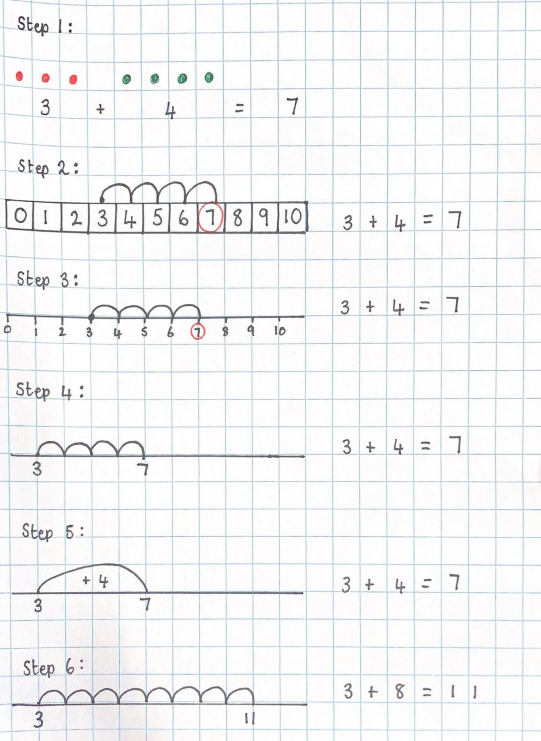 Step 1:
3 + 4 = 7
Step 2:
0 1 2 3 4 5 6 7 8 9 10
3 + 4 = 7
Step 3:
3 + 4 = 7
0 1 2 3 4 5 6 7 8 9 10
Step 4:
3 + 4 = 7
3 7
Step 5:
+ 4
3 + 4 = 7
3 7
Step 6:
3 + 8 = 11
3 11